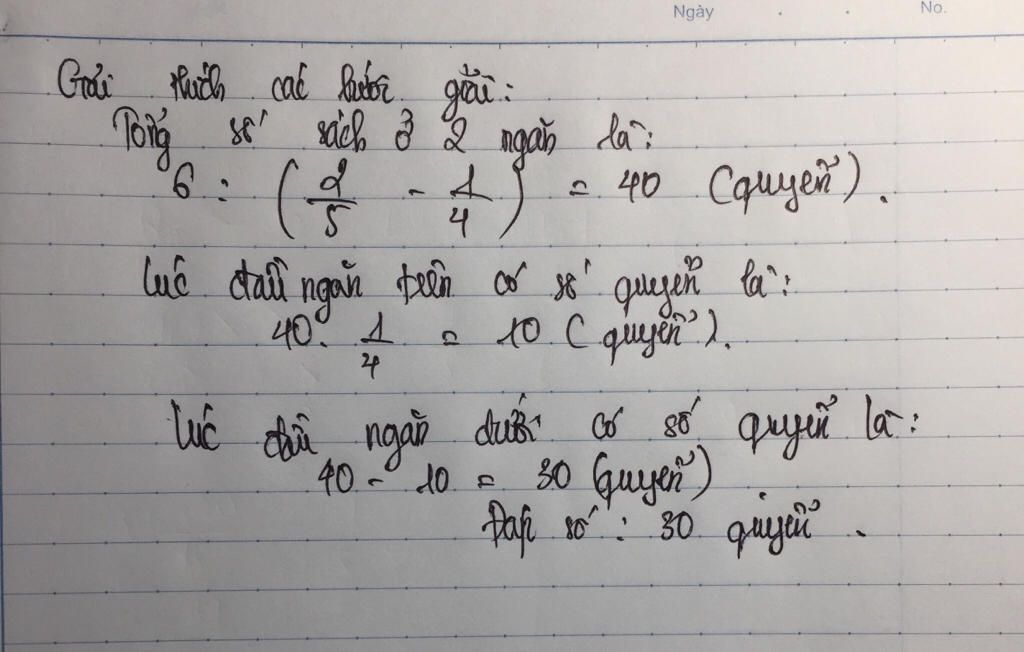 Ngày No.
Giải thích các bước giải:
Tổng số sách ở 2 ngăn là:
6 : ( 2/5 - 1/4 ) = 40 (quyển).
Lúc đầu ngăn trên có số quyển là:
40. 1/4 = 10 (quyển).
Lúc đầu ngăn dưới có số quyển là:
40 - 10 = 30 (quyển)
Đáp số : 30 quyển.